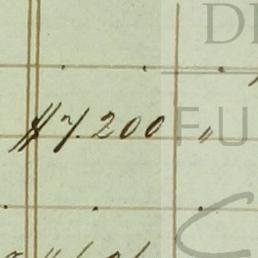 DI
$7.200 "
FU
C